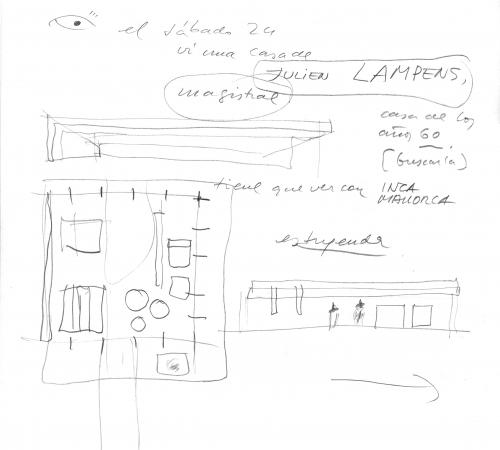 el sábado 24
vi una casa de
JULIEN LAMPENS,
magistral
casa de los
años 60
(buscarla)
tiene que ver con INCA
MALLORCA
estupenda